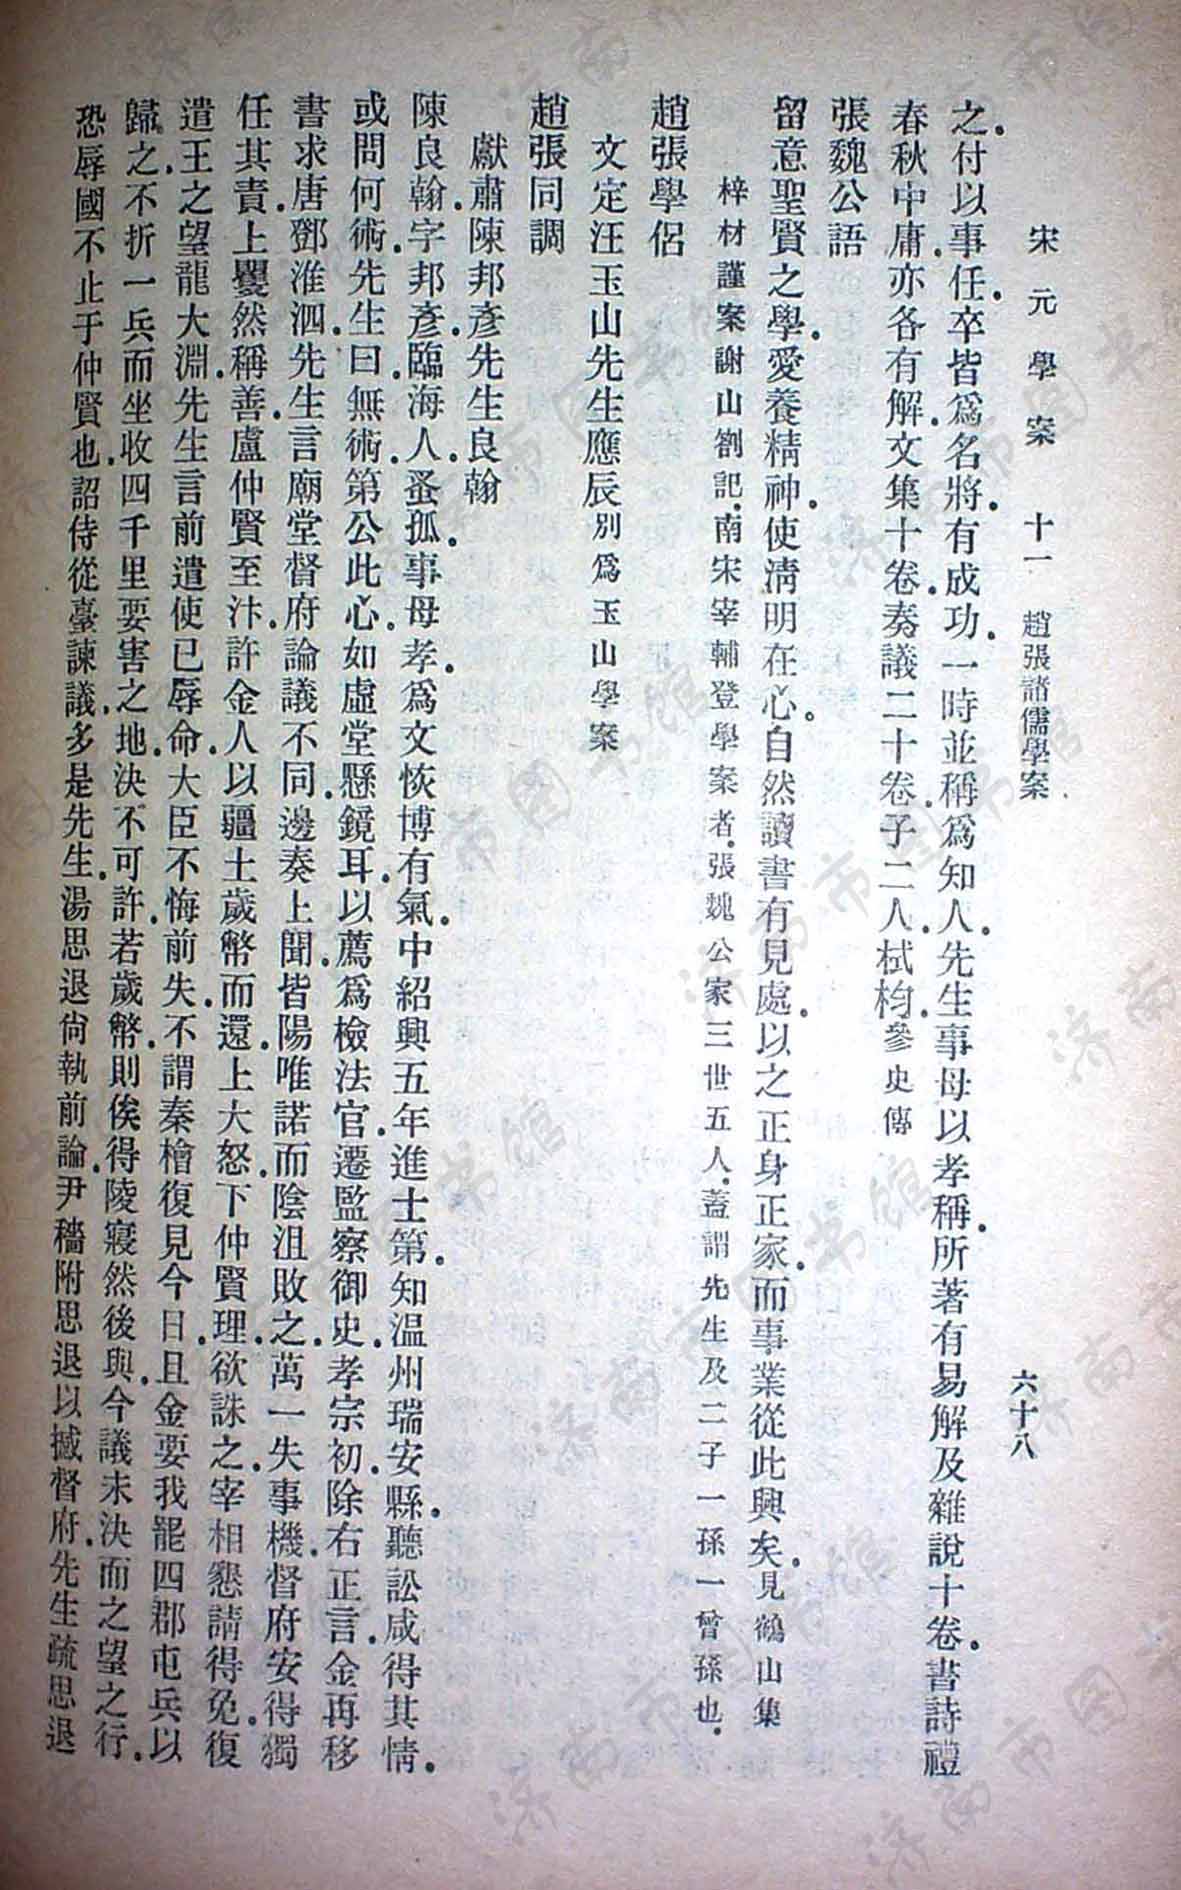 宋元學案 十一 趙張諸儒學案 六十八
之.付以事任.卒皆爲名將.有成功.一時並稱爲知人.先生事母以孝稱.所著有易解及雜說十卷.書詩禮
春秋中庸.亦各有解.文集十卷.奏議二十卷.子二人.栻枃.參史傳
張魏公語
留意聖賢之學.愛養精神.使淸明在心。自然讀書有見處.以之正身正家.而事業從此興矣.見鶴山集
梓材謹案謝山劄記.南宋宰輔登學案者.張魏公家三世五人.蓋謂先生及二子一孫一曾孫也.
趙張學侶
文定汪玉山先生應辰別爲玉山學案
趙張同調
獻肅陳邦彥先生良翰
陳良翰.字邦彥.臨海人.蚤孤.事母孝.爲文恢博有氣.中紹興五年進士第.知温州瑞安縣.聽訟咸得其情.
或問何術.先生曰.無術.第公此心.如虛堂懸鏡耳.以薦爲檢法官.遷監察御史.孝宗初.除右正言.金再移
書求唐鄧淮泗.先生言廟堂督府論議不同.邊奏上聞.皆陽唯諾而陰沮敗之.萬一失事機.督府安得獨
任其責.上矍然稱善.盧仲賢至汴.許金人以疆土歲幣而還.上大怒.下仲賢理.欲誅之.宰相懇請得免.復
遣王之望龍大淵.先生言前遣使已辱命.大臣不悔前失.不謂秦檜復見今日.且金要我罷四郡屯兵以
歸之.不折一兵而坐收四千里要害之地.決不可許.若歲幣則俟得陵寢然後與.今議未決而之望之行.
恐辱國不止于仲賢也.詔侍從臺諫議.多是先生.湯思退尙執前論.尹穡附思退以撼督府.先生疏思退